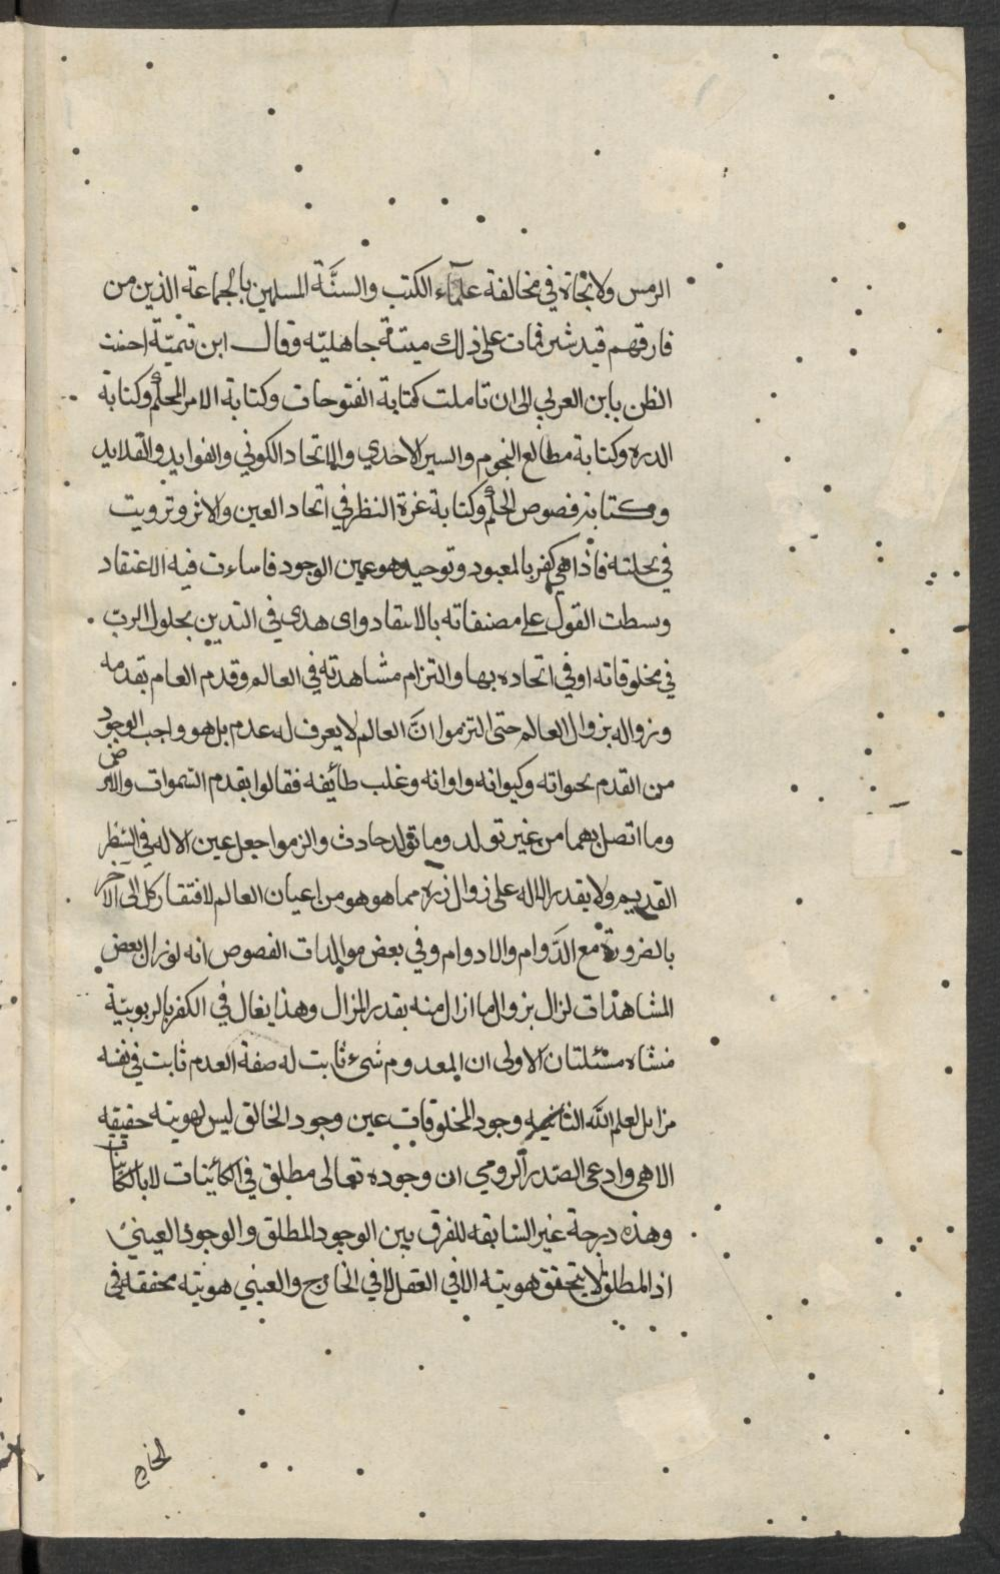 الرمس ولا نجاة في مخالفة علمآء الكتب والسنَّة المسلمين بالجماعة الذين من
فارقهم قيد شبر فمات على ذلك ميتة جاهليّه وقال ابن تيميّة احسنت
الظن بابن العربي الى ان تاملت كتابة الفتوحات وكتابة الامر المحكم وكتابة
الدره وكتابة مطالع النجوم والسير الاحدي والاتحاد الكوني والفوايد والقلايد
وكتابة فصوص الحكم وكتابة غرة النظر في اتحاد العين والاثر وترويت
في نحلته فاذا هي كفر بالمعبود وتوحيده وهو عين الوجود فاساءت فيه الاعتقاد
وبسطت القول على مصنفاته بالانتقاد واى هدى في التدين بحلول الرب
في مخلوقاته او في اتحاده بها والتزام مشاهدته في العالم وقدم العام بقدمه
وزواله بزوال العالم حتى التزموا انَّ العالم لا يعرف له عدم بل هو واجب الوجود
من القدم بحواته وكيوانه واوانه وغلب طائفه فقالوا بقدم السموات والارض
وما اتصل بهما من غير تولد وما تولد حادث والزموا جعل عين الاله في النظر
القديم ولا يقدر الاله على زوال ذره مما هو هو من اعيان العالم لافتقار كل الى الآخر
بالضرورة مع الدَّوام والادوام وفي بعض موالدات الفصوص انه لو زال بعض
المشاهدات لزال بزوال ما ازال منه بقدر المزال وهذا يغال في الكفر بالربوبيّة
منشاه مسئلتان الاولى ان المعدوم شيء ثابت له صفة العدم ثابت في نفسه
مزايل لعلم الله الثانيه وجود المخلوقات عين وجود الخالق ليس لهويته حقيقه
الا هي وادعى الصّدر الرومي ان وجوده تعالى مطلق في الكائينات لا بالكائنات
وهذه درجة غير السابقه للفرق بين الوجود المطلق والوجود العيني
اذ المطلق لا يتحقق هويته الا في العقل لا في الخارج والعيني هويته محققه في
الخارج